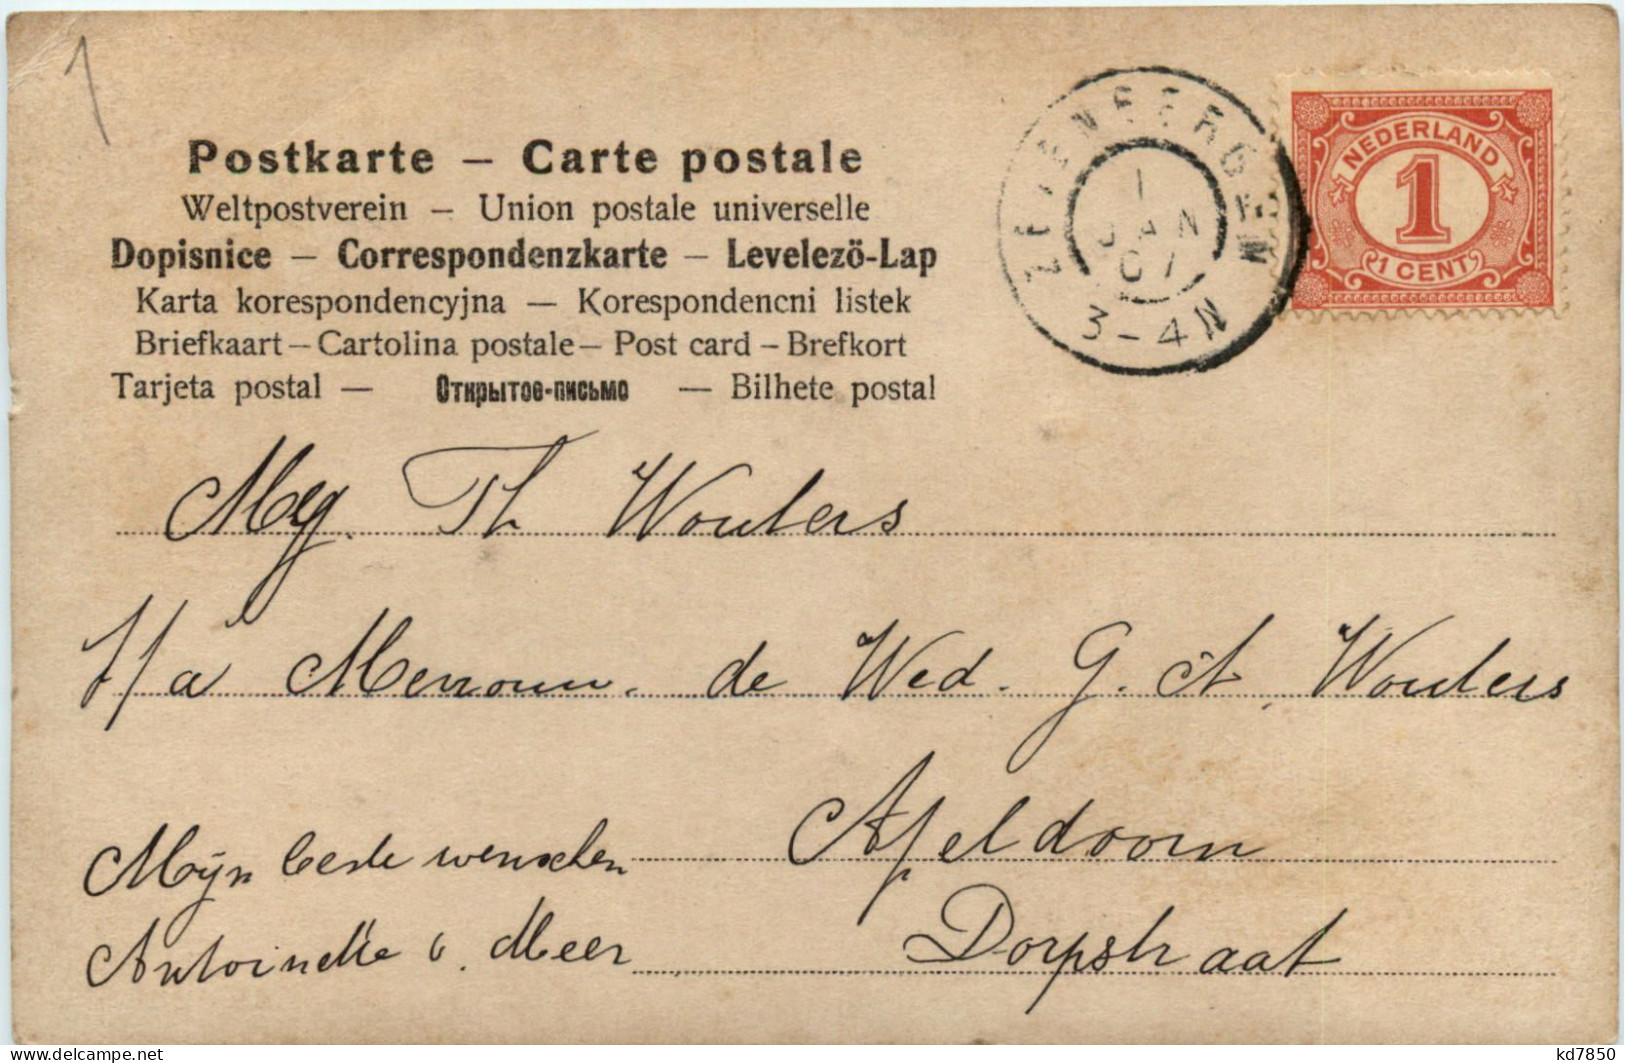 1
Postkarte – Carte postale
Weltpostverein – Union postale universelle
Dopisnice – Correspondenzkarte – Levelezö-Lap
Karta korespondencyjna — Korespondencni listek
Briefkaart – Cartolina postale – Post card – Brefkort
Tarjeta postal — Открытое-письмо — Bilhete postal
ZEVENBERGEN
1
JAN
07
3-4N
NEDERLAND
1
1 CENT
Mej. Th Wouters
p/a Mevrouw. de Wed. G. A. Wouters
Apeldoorn
Dorpstraat
Mijn beste wenschen
Antoinette v. Meer
delcampe.net
kd7850